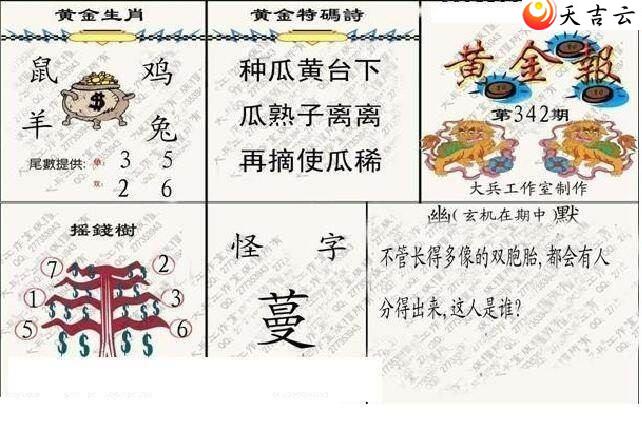 天吉云
黄金生肖
鼠 鸡
羊 兔
$
尾數提供: 单: 3 5
双: 2 6
黄金特碼詩
种瓜黄台下
瓜熟子离离
再摘使瓜稀
黄金報
第342期
大兵工作室制作
摇錢樹
7 2
1 3
5 6
$ $ $ $ $ $ $ $
怪字
蔓
幽(玄机在期中)默
不管长得多像的双胞胎,都会有人
分得出来,这人是谁?